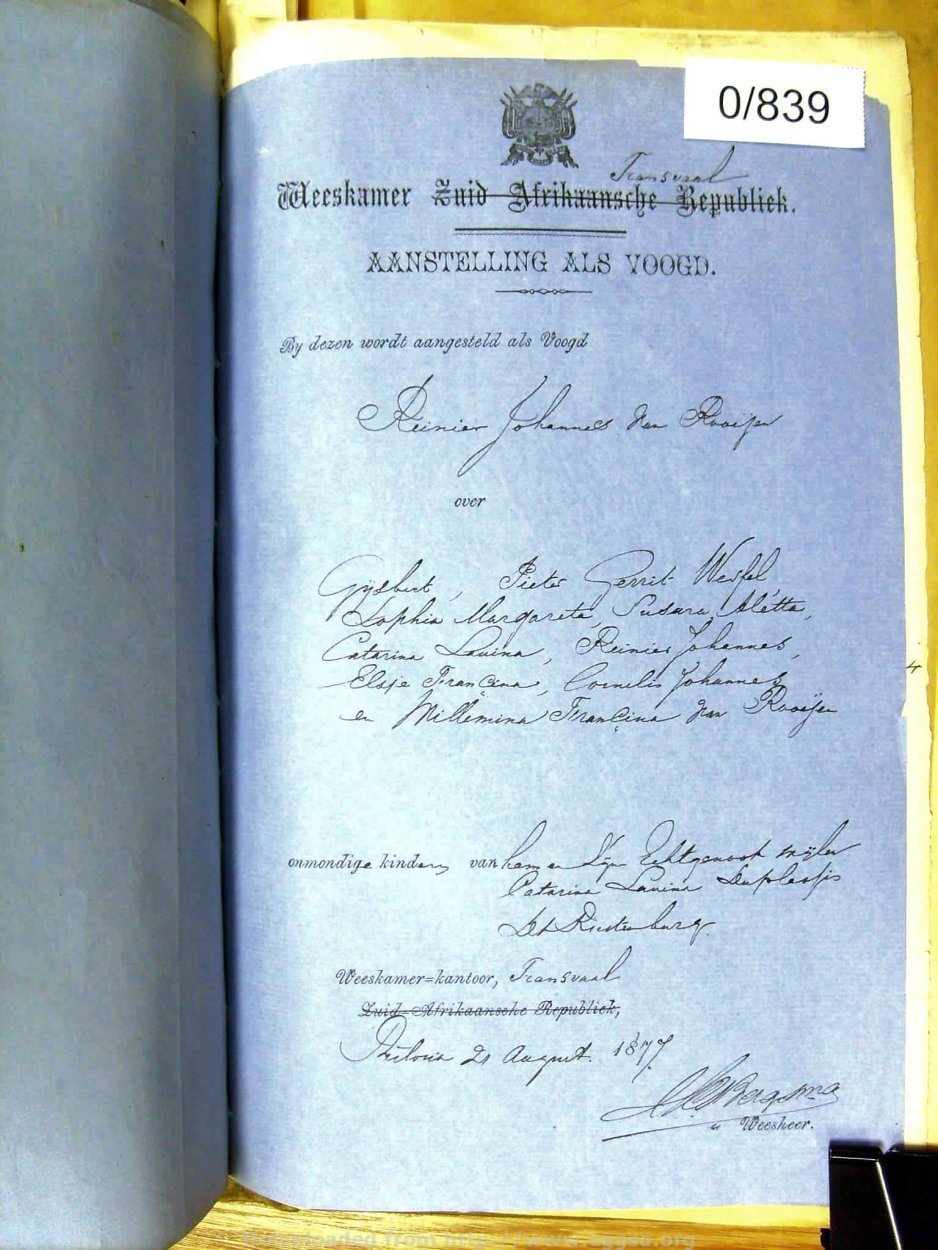 0/839
Transvaal
Weeskamer Zuid Afrikaansche Republiek.
AANSTELLING ALS VOOGD.
By dezen wordt aangesteld als Voogd
Reinier Johannes van Rooijen
over
Gijsbert, Pieter Gerrit Wessel
Sophia Margareta, Susara Aletta,
Catarina Lavina, Reinier Johannes,
Elsje Francina, Cornelis Johannes
en Willemina Francina van Rooijen
4
onmondige kinders van hem en Zijn Echtgenoot wijlen
Catarina Lavina Duplessis
Dist Rustenburg.
Weeskamer=kantoor, Transvaal
Zuid-Afrikaansche Republiek,
Pretoria 21 August. 1877.
Bergsma
Weesheer.
Downloaded from http://www.eggsa.org